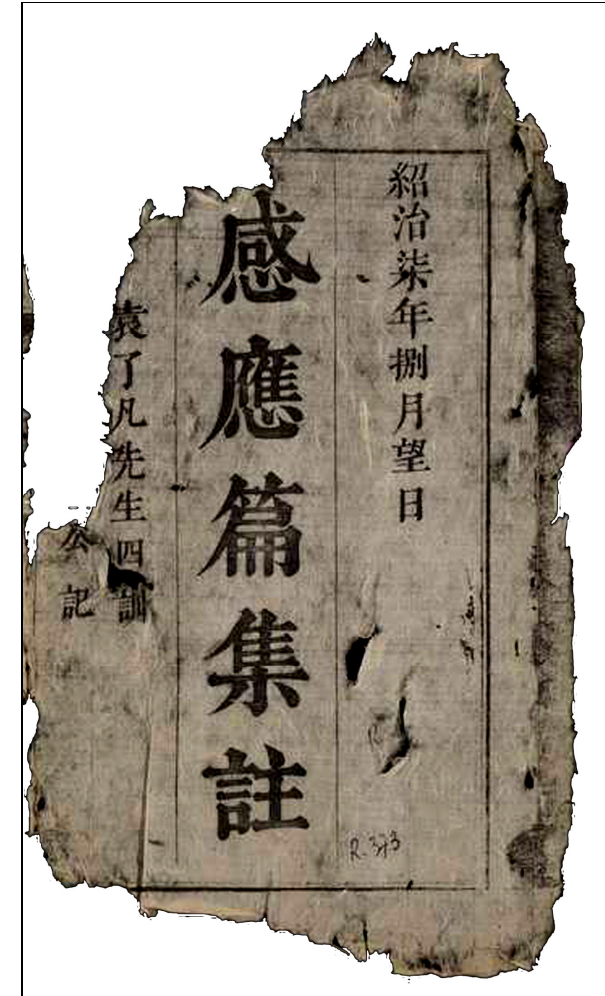 紹治柒年捌月望日
感應篇集註
袁了凡先生四訓
公記
R.373